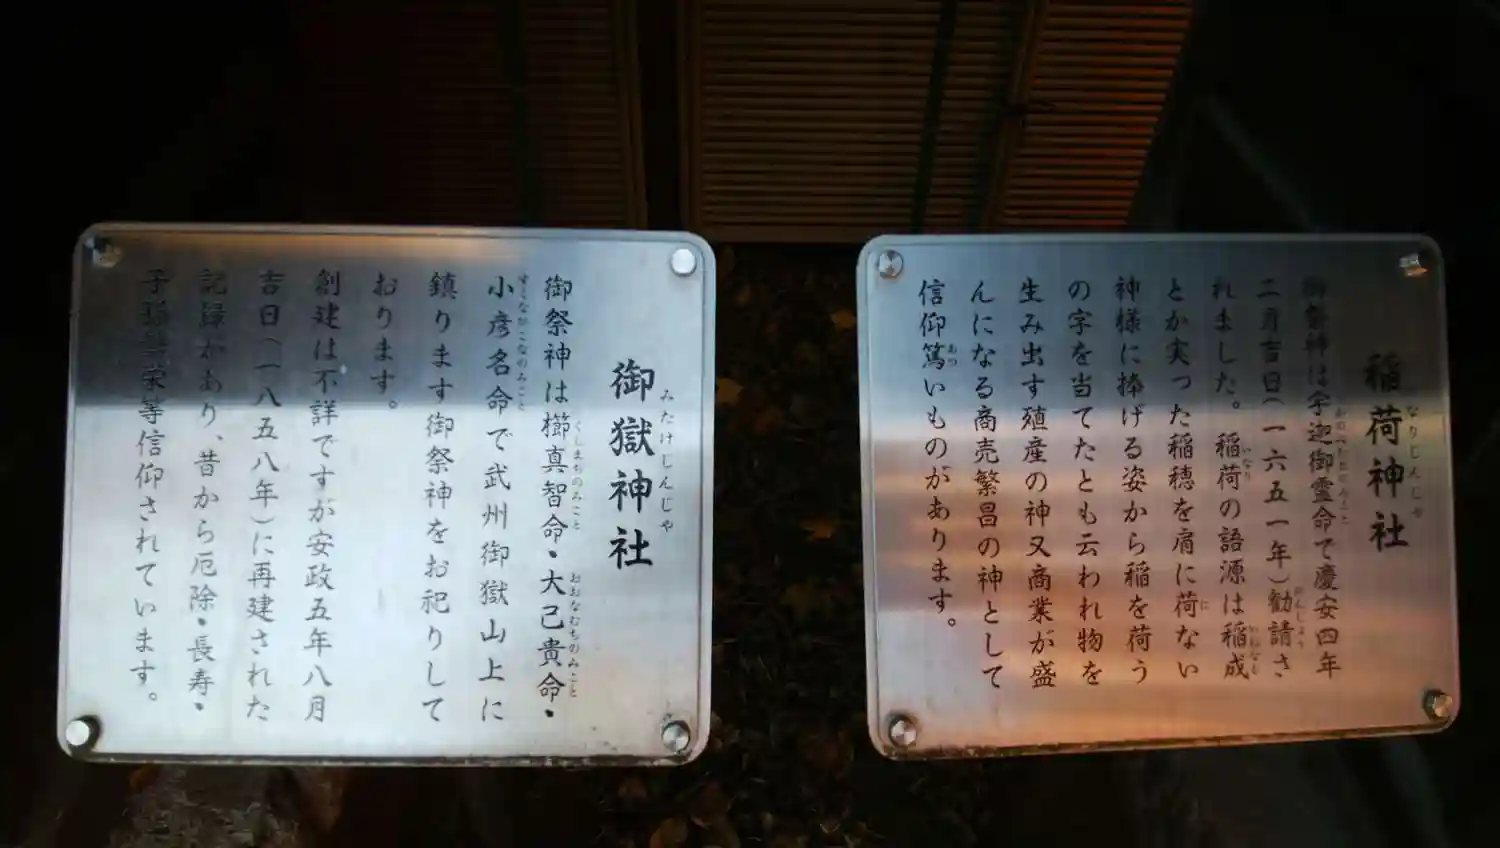 稲荷神社
なりじんじゃ
御祭神は宇迦御霊命で慶安四年
二月吉日(一六五一年)勧請さ
かんじょう
れました。稲荷の語源は稲成
いなり
いねなり
とか実った稲穂を肩に荷ない
に
神様に捧げる姿から稲を荷う
の字を当てたとも云われ物を
生み出す殖産の神又商業が盛
んになる商売繁昌の神として
信仰篤いものがあります。
あつ
御嶽神社
みたけじんじゃ
御祭神は櫛真智命・大己貴命・
くしまちのみこと
おおなむちのみこと
小彦名命で武州御嶽山上に
すくなひこなのみこと
鎮ります御祭神をお祀りして
おります。
創建は不詳ですが安政五年八月
吉日(一八五八年)に再建された
記録があり、昔から厄除・長寿・
子孫繁栄等信仰されています。